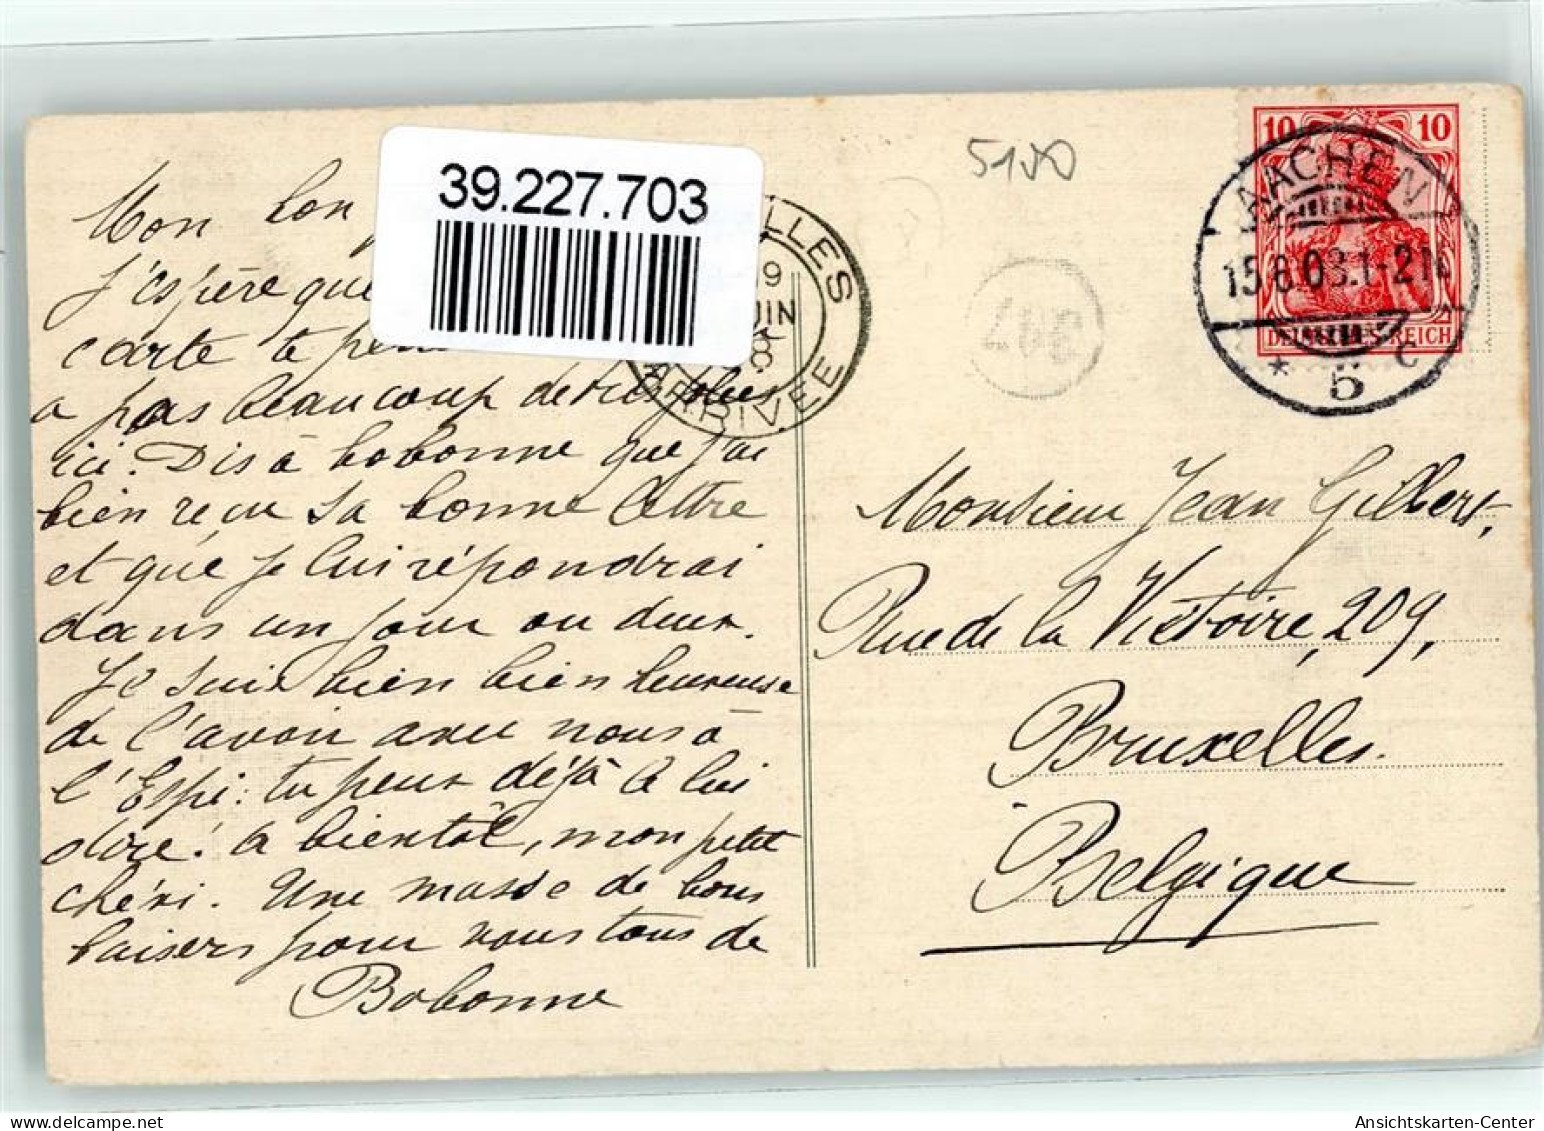 39.227.703
5100
10 10
DEUTSCHES REICH
AACHEN
15.6.08.1-2N
* 5 c
LLES
9
JUIN
8
ARRIVEE
Mon bon
J'espère que
carte te
a pas beaucoup de
ici. Dis à bobonne que j'ai
bien reçu sa bonne lettre
et que je lui répondrai
dans un jour ou deux.
Je suis bien bien heureuse
de l'avoir avec nous à
l'Espi: tu peux déjà le lui
dire! à bientôt, mon petit
chéri. Une masse de bons
baisers pour vous tous de
Bobonne
Monsieur Jean Gilbert,
Rue de la Victoire, 209,
Bruxelles.
Belgique
Ansichtskarten-Center